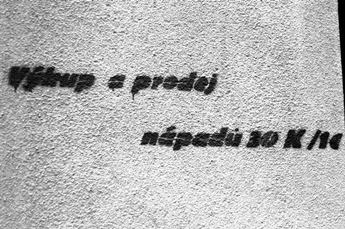 Výkup a prodej
nápadů 30 K